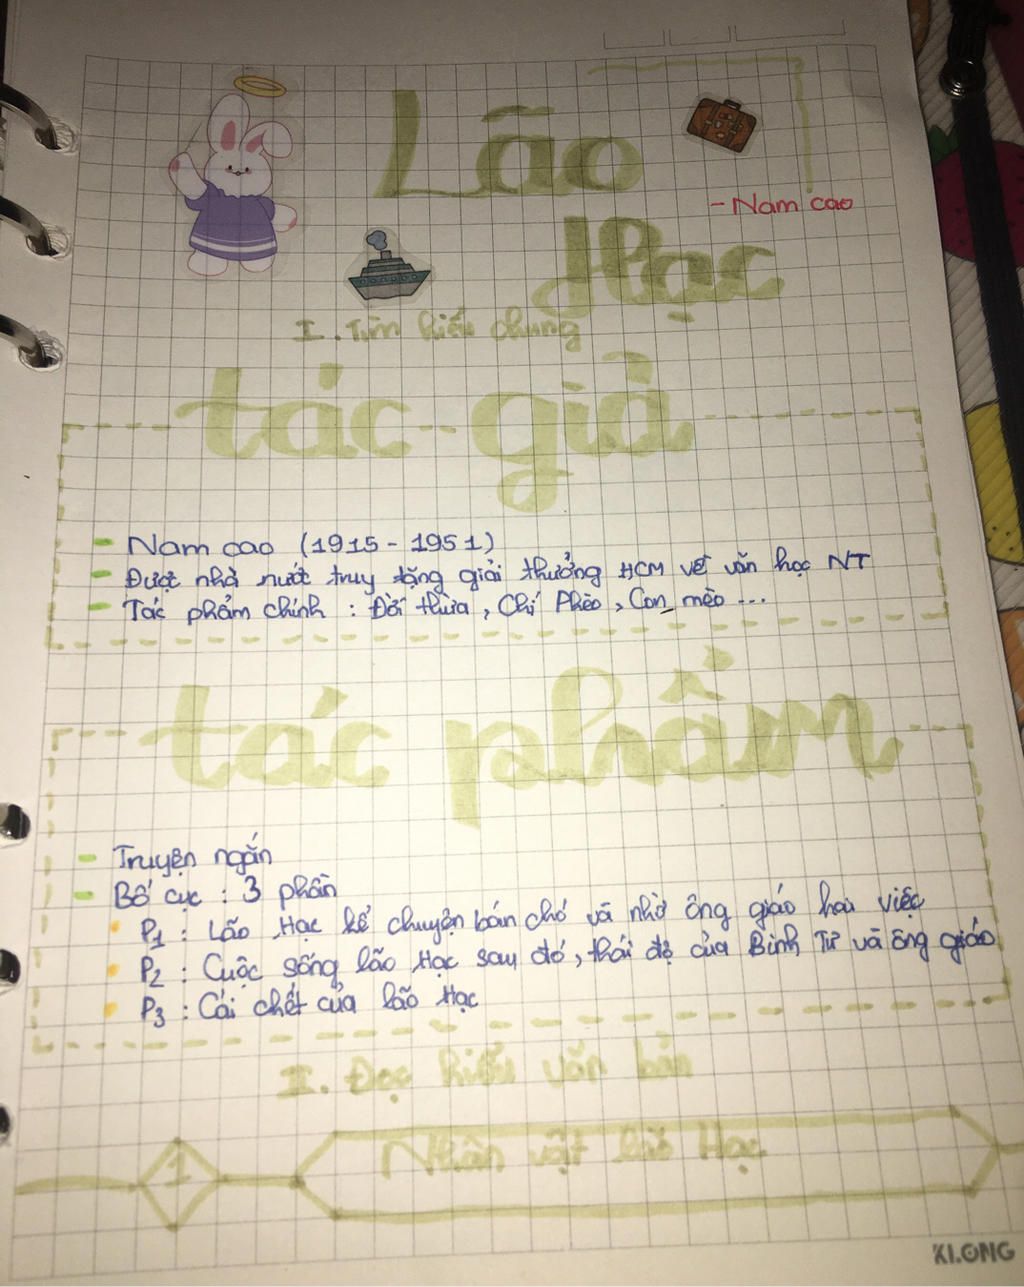 Lão
- Nam cao
Hạc
I. Tìm hiểu chung
tác giả
- Nam cao (1915 - 1951)
- Được nhà nước truy tặng giải thưởng HCM về văn học NT
- Tác phẩm chính : Đời thừa, Chí Phèo, Con mèo ...
tác phẩm
- Truyện ngắn
- Bố cục : 3 phần
P1 : Lão Hạc kể chuyện bán chó và nhờ ông giáo hai việc
P2 : Cuộc sống lão Hạc sau đó, thái độ của Binh Tư và ông giáo
P3 : Cái chết của lão Hạc
I. Đọc hiểu văn bản
1 Nhân vật lão Hạc
KLONG